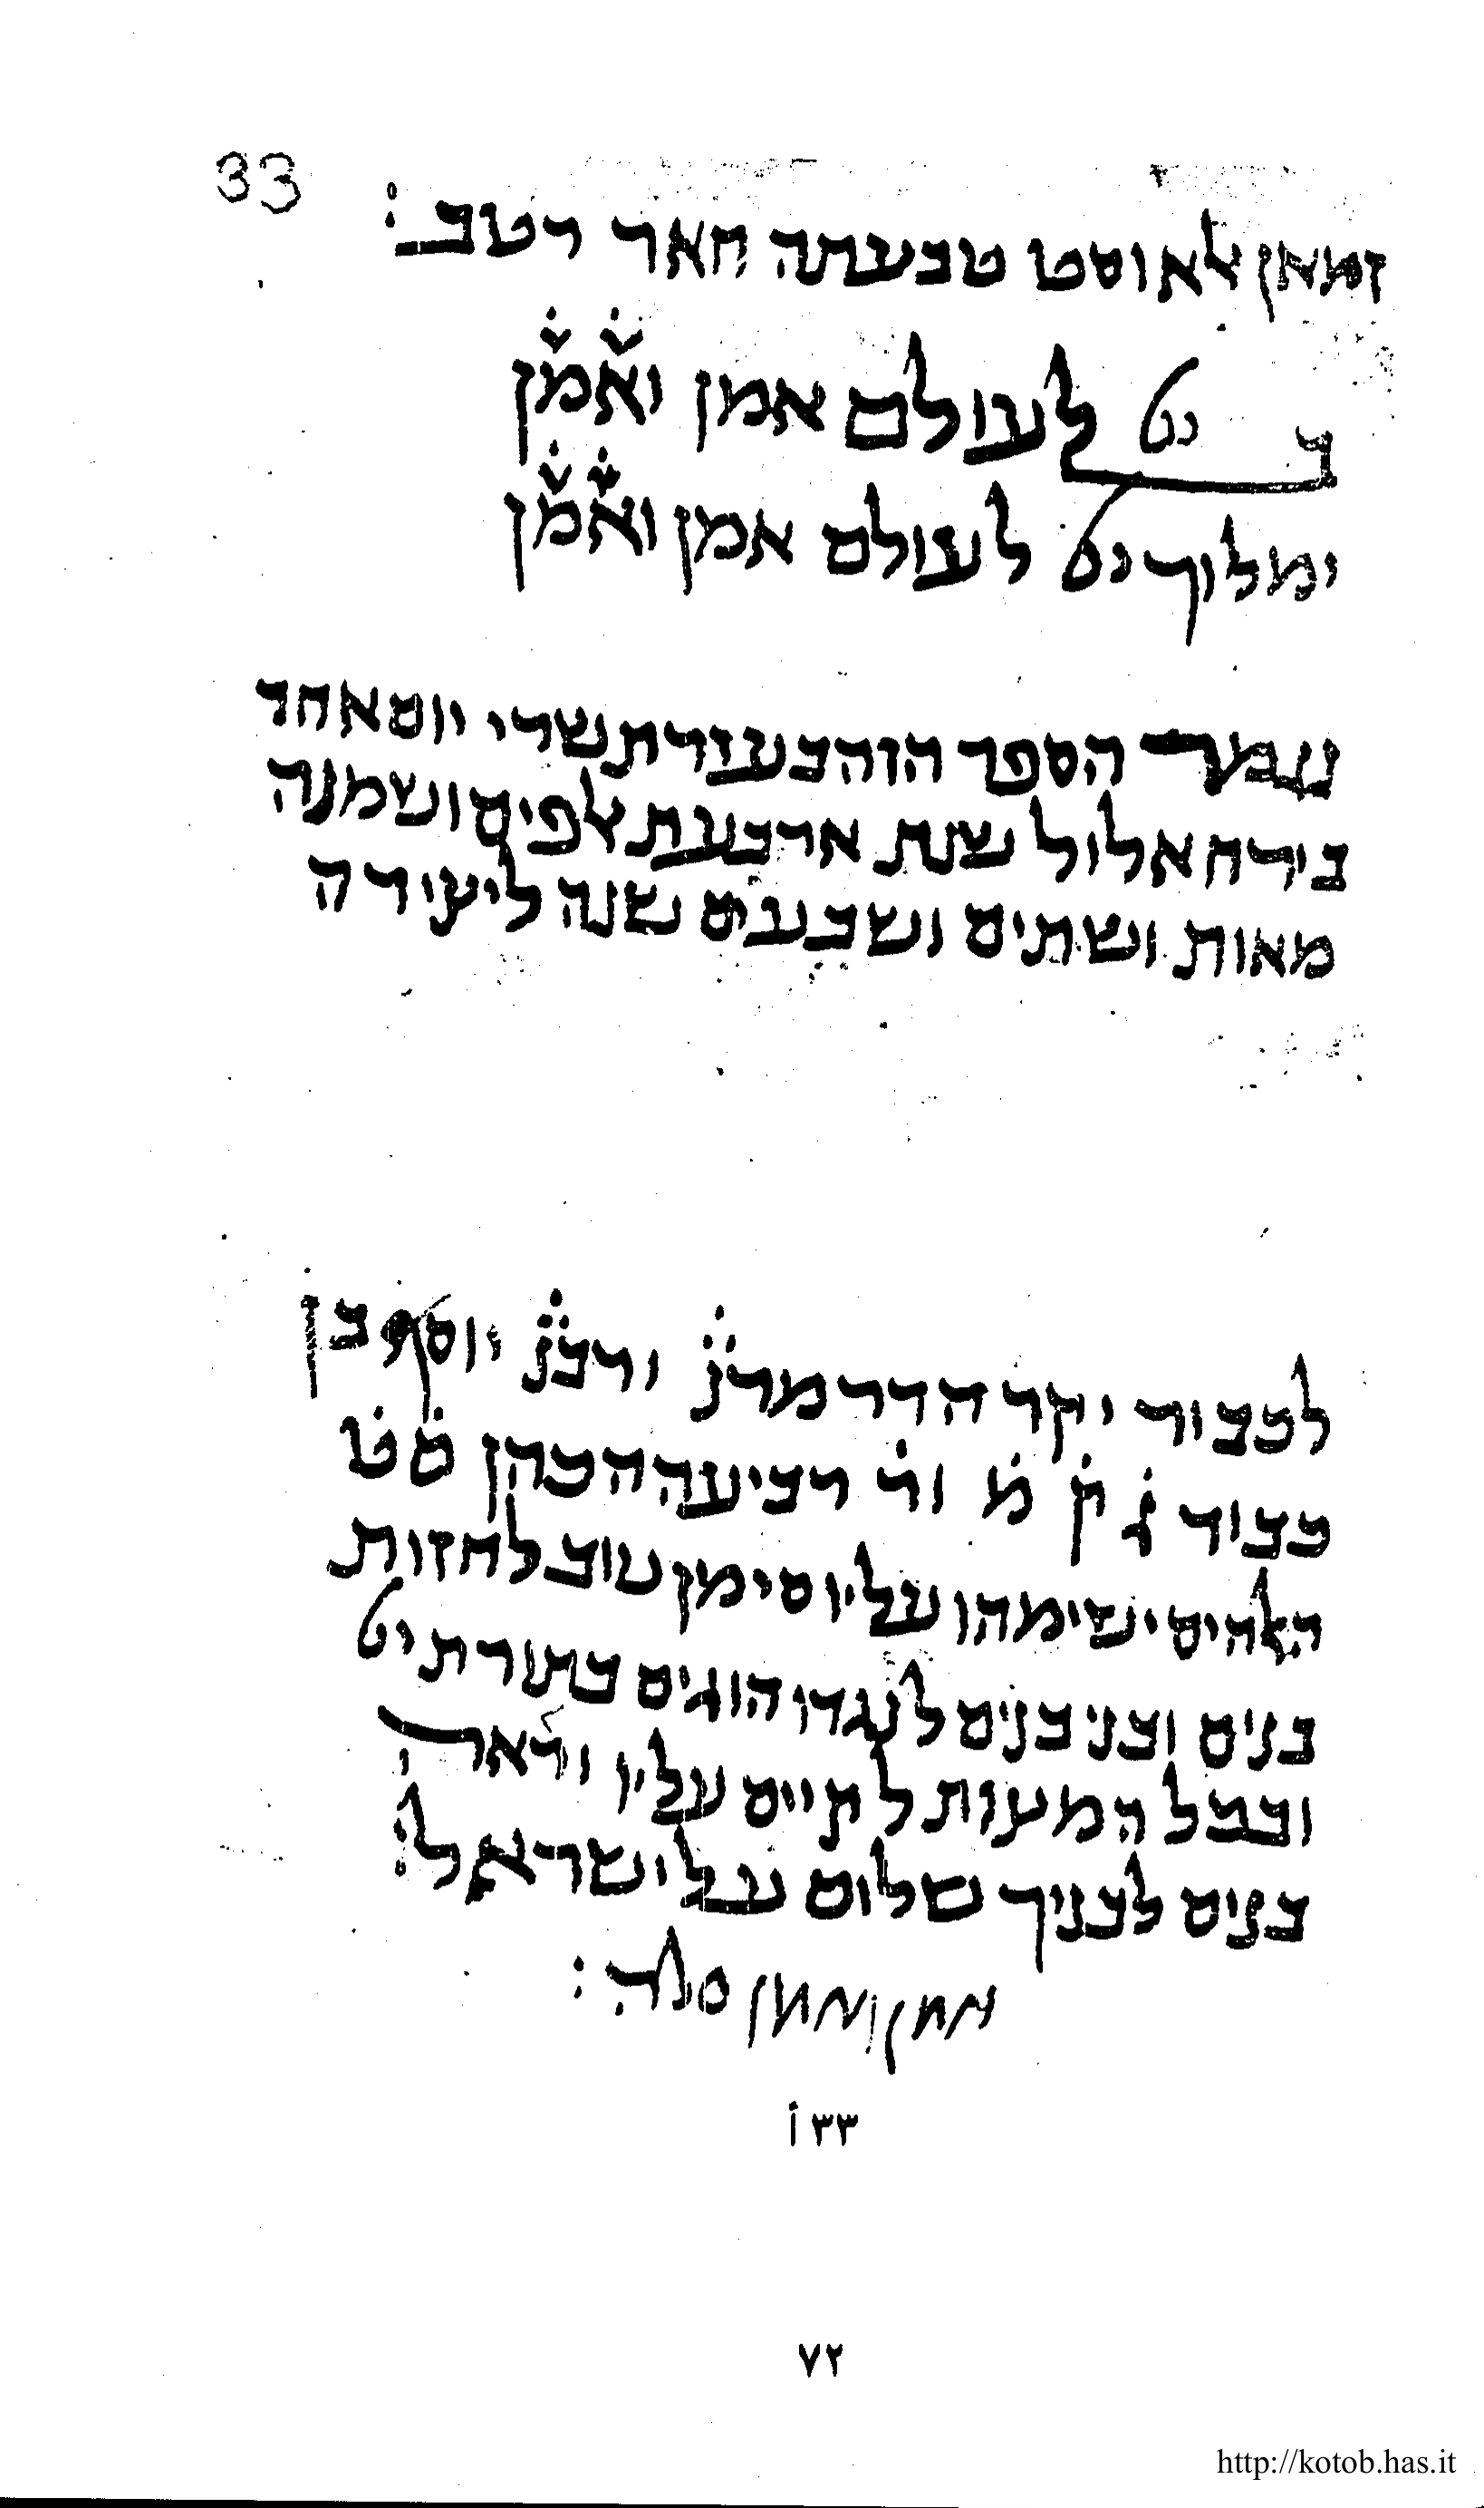 33
זמאן אלאוסט טבעתה חאר רטב:
ב יי לעולם אמן ואמן
ימלוך יי לעולם אמן ואמן
הספר הזה בעזרת שדי יום אחד
בירח אלול שנת ארבעת אלפים ושמנה
מאות ושתים ושבעים שנה ליצירה
לכבוד יקר הדר מרנ ורבנ יוסף בן
כבוד ג ק מ ור רביעה הכהן סט
האלהים ישימהו עליו סימן טוב לחזות
בנים ובני בנים לנגדו הוגים בתורת יי
ובכל המעות לקיים עליו וראה
בנים לבניך שלום על ישראל:
אמן ואמן סלה:
٣٣ أ
٧٢
http://kotob.has.it